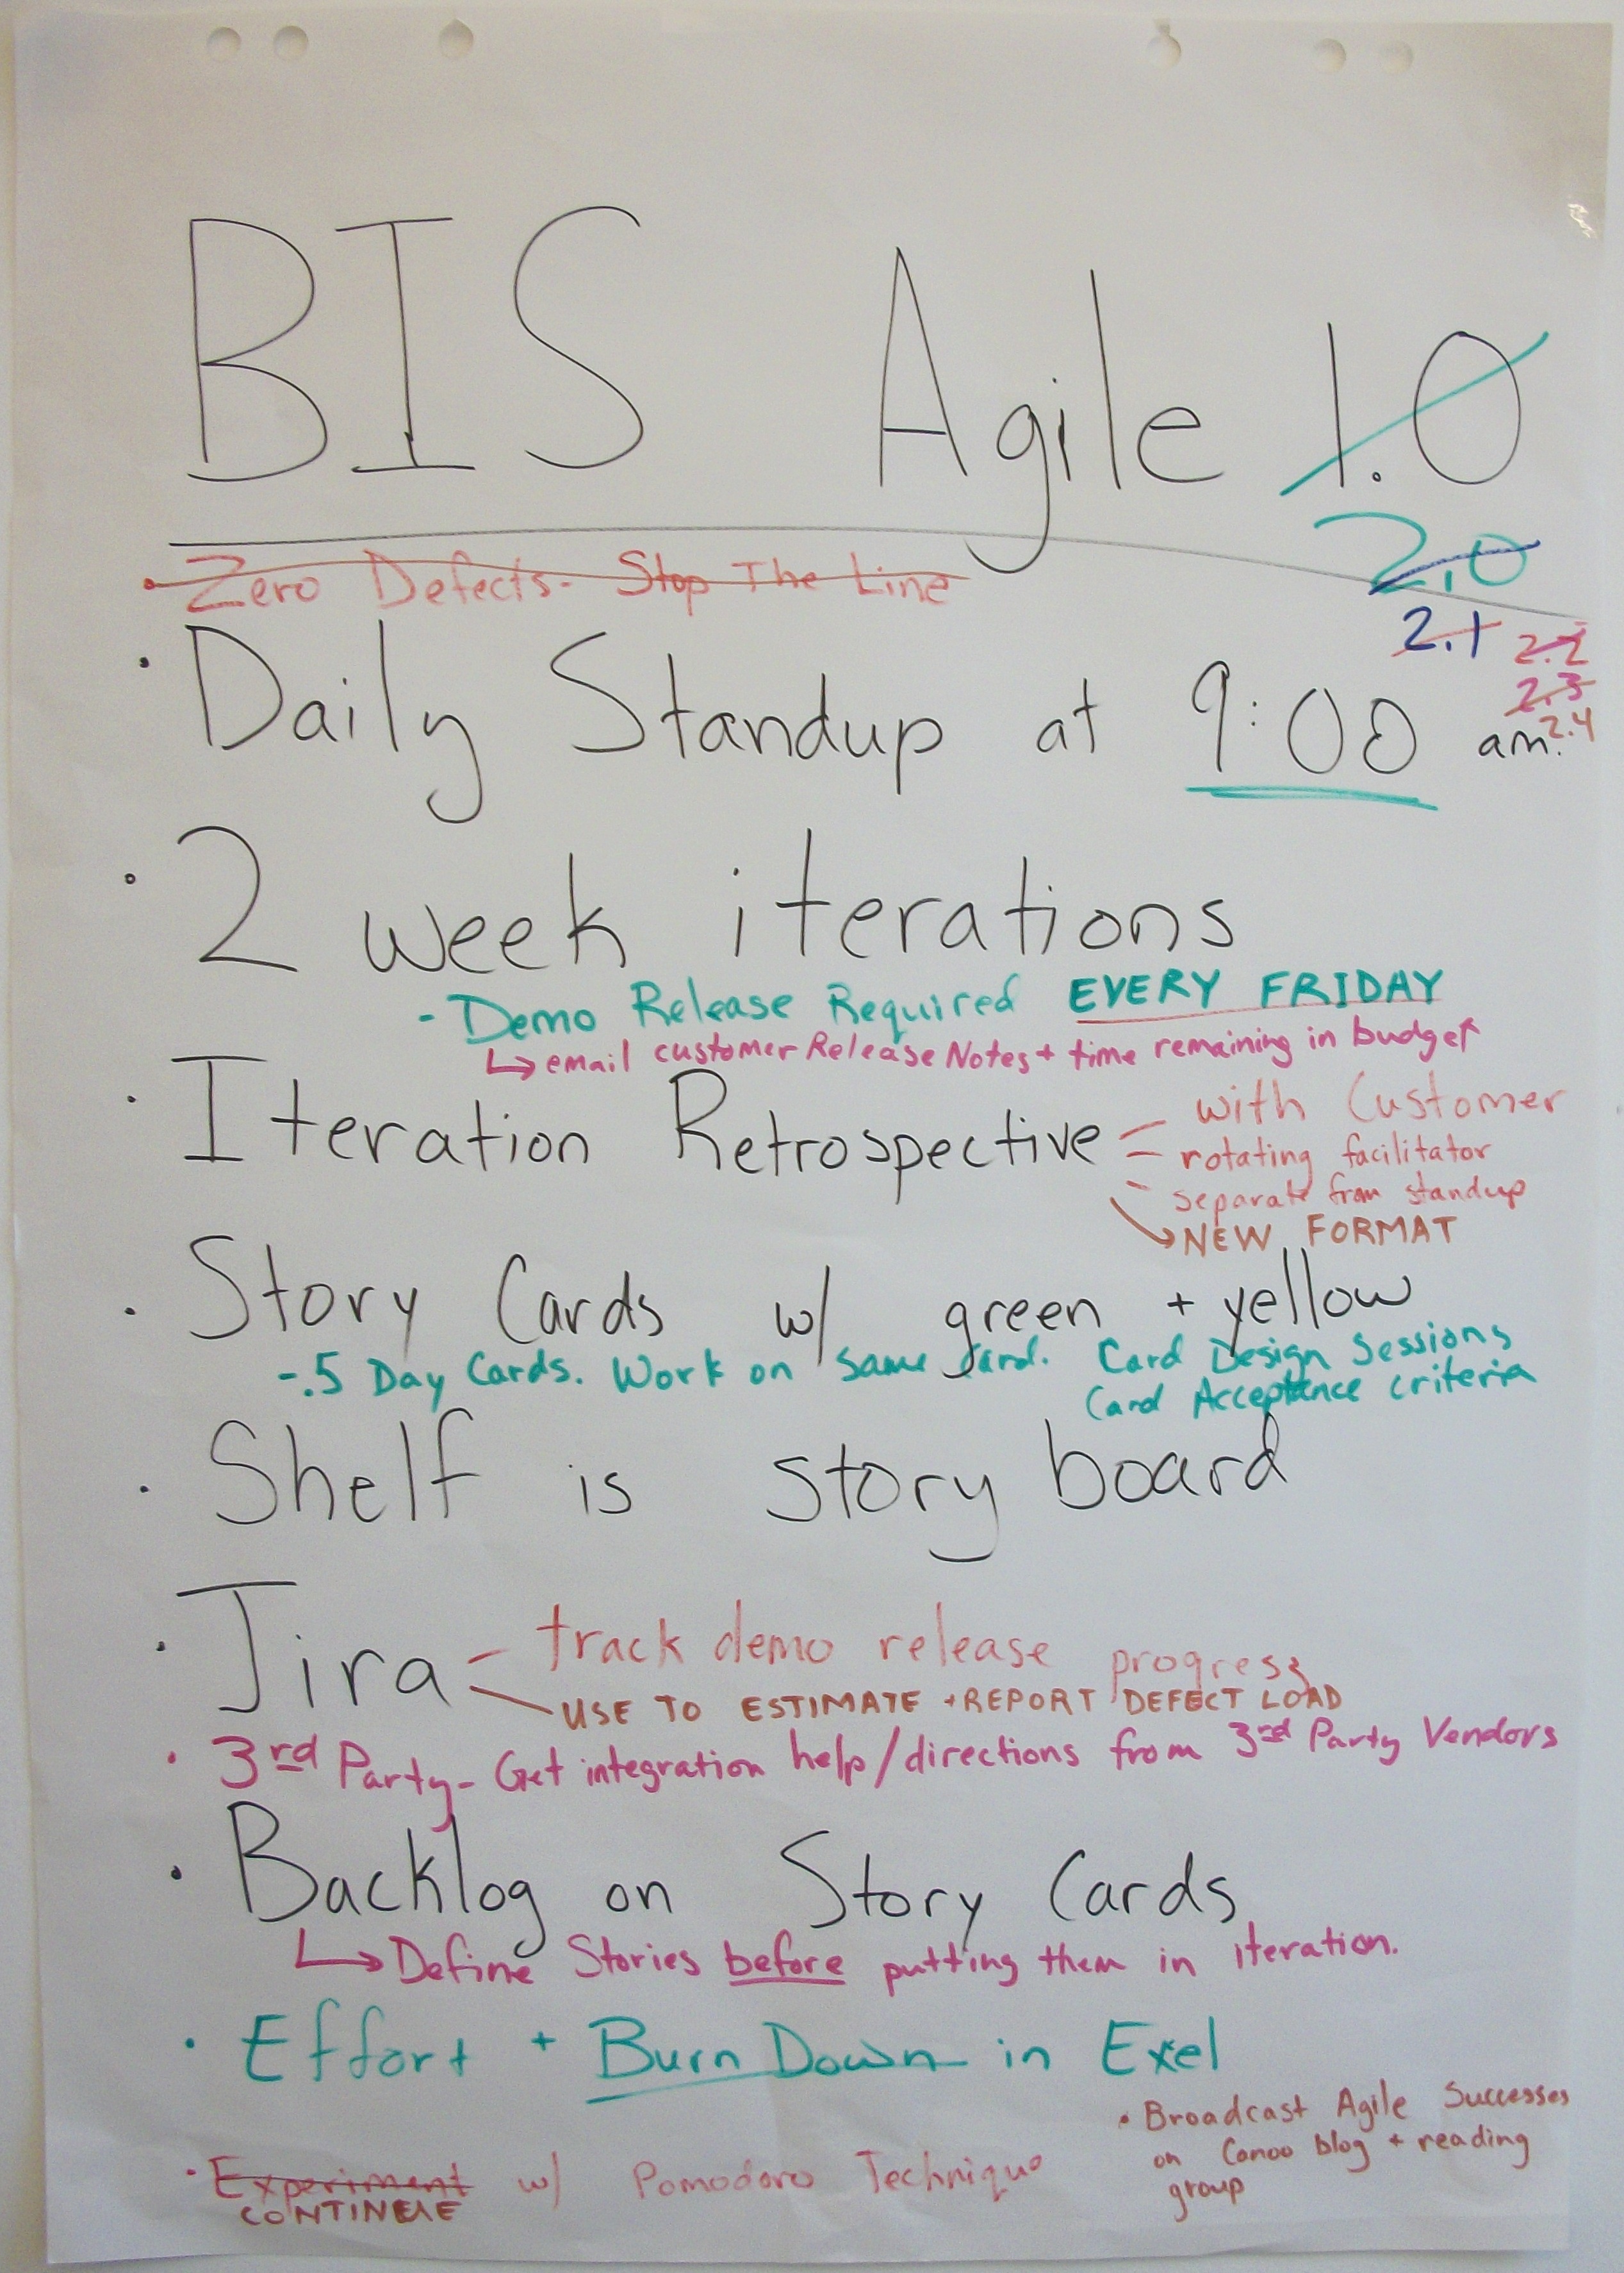 BIS Agile 1.0
2.0
• Zero Defects - Stop The Line
2.1 2.2
2.3
2.4
• Daily Standup at 9:00 am.
• 2 week iterations
- Demo Release Required EVERY FRIDAY
↳ email customer Release Notes + time remaining in budget
• Iteration Retrospective - with Customer
- rotating facilitator
- separate from standup
↘ NEW FORMAT
• Story Cards w/ green + yellow
- .5 Day Cards. Work on same card. Card Design Sessions
Card Acceptance criteria
• Shelf is story board
• Jira - track demo release progress
- USE TO ESTIMATE + REPORT DEFECT LOAD
• 3rd Party - Get integration help/directions from 3rd Party Vendors
• Backlog on Story Cards
↳ Define Stories before putting them in iteration.
• Effort + Burn Down in Exel
• Broadcast Agile Successes
on Canoo blog + reading
group
• Experiment w/ Pomodoro Technique
CONTINUE